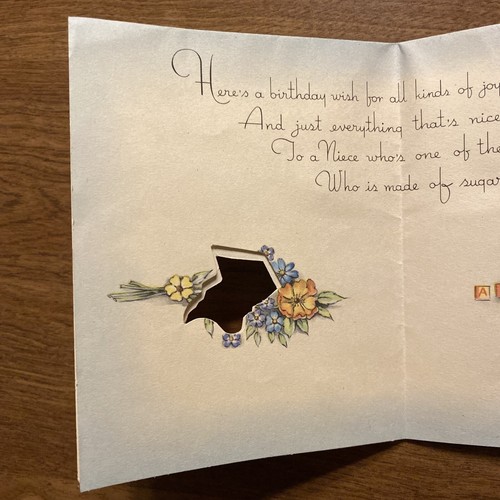 Here's a birthday wish for all kinds of joy
And just everything that's nice
To a Niece who's one of the
Who is made of sugar
A